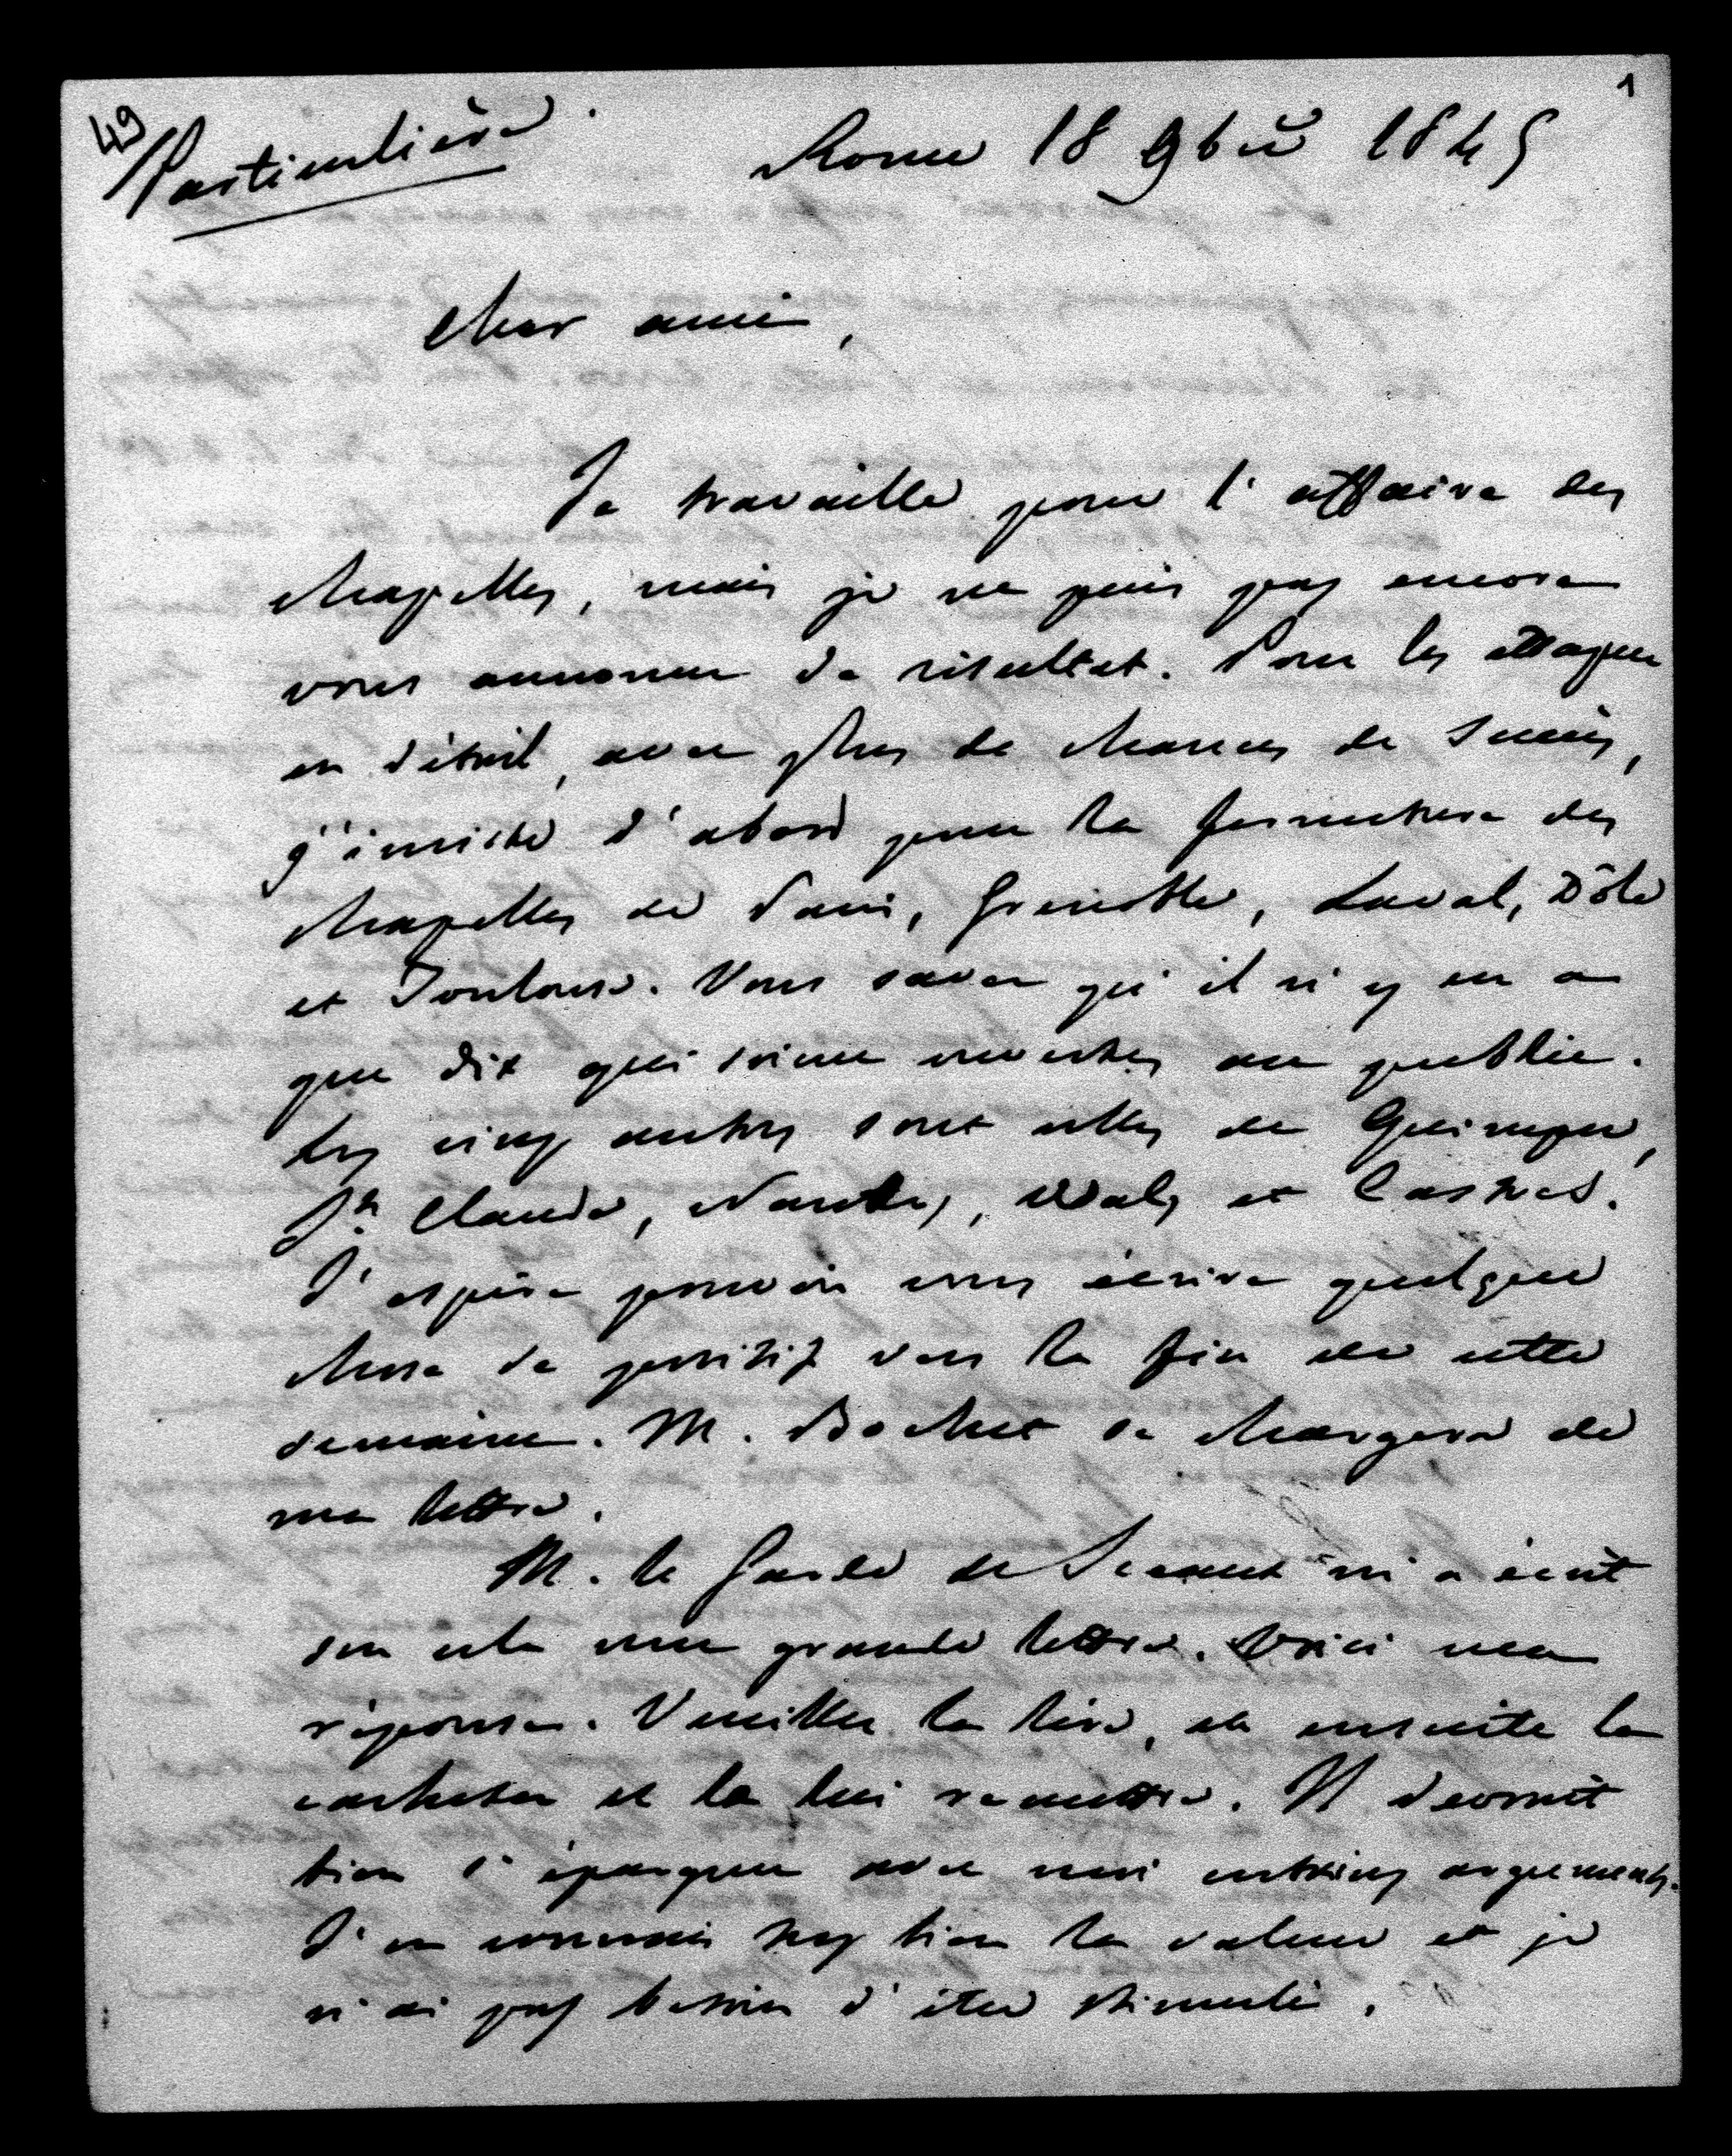 49
1
Particulière.
Rome 18 9bre 1845
Cher ami,
Je travaille pour l'affaire des
chapelles, mais je ne puis pas encore
vous annoncer de résultat. Pour les attaquer
en détail, avec plus de chances de succès,
j'insiste d'abord pour la fermeture des
chapelles de Paris, Grenoble, Laval, Dôle
et Toulouse. Vous savez qu'il n'y en a
que dix qui soient ouvertes au public.
Les cinq autres sont celles de Quimper,
St Claude, Nantes, Vals et Castres.
J'espère pouvoir vous écrire quelque
chose de positif vers la fin de cette
semaine. M. Bochet se chargera de
ma lettre.
M. le Garde des Sceaux m'a écrit
sur cela une grande lettre. Voici ma
réponse. Veuillez la lire, et ensuite la
cacheter et la lui remettre. Il devrait
bien s'épargner avec moi certains arguments.
J'en connais trop bien la valeur et je
n'ai pas besoin d'être stimulé.